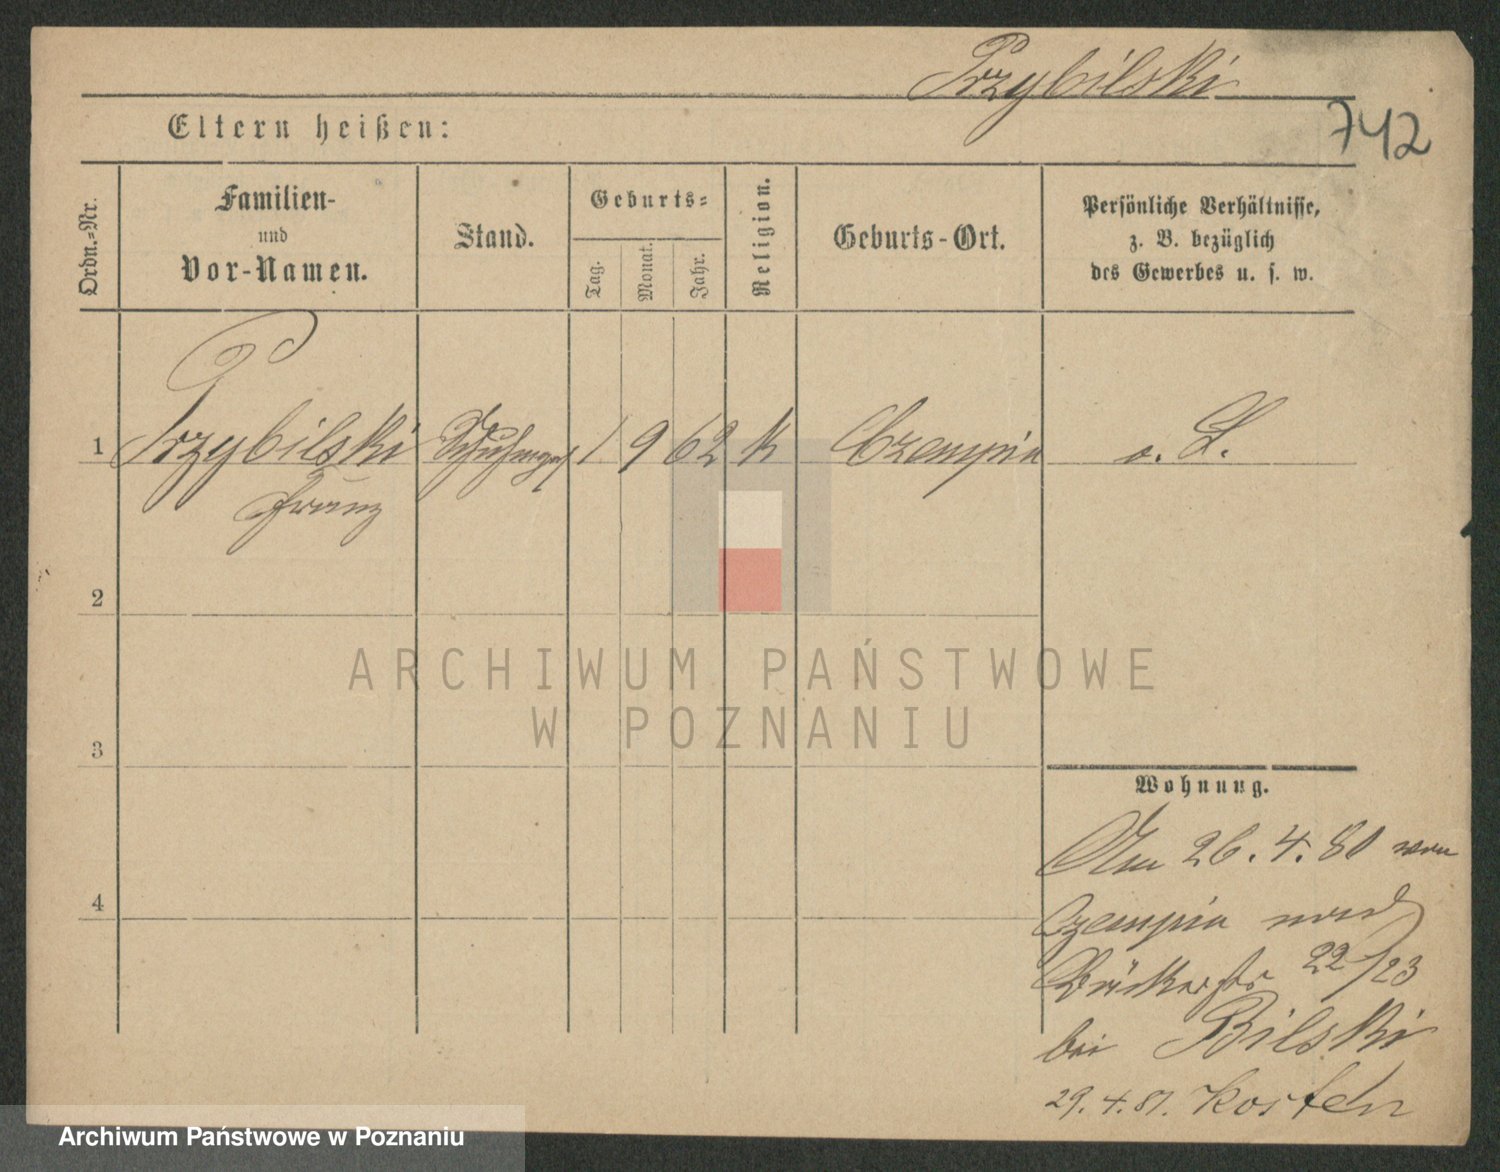 Przybilski
742
Eltern heißen:
Ordn.-Nr.
Familien-
und
Vor-Namen.
Stand.
Geburts-
Tag.
Monat.
Jahr.
Religion.
Geburts-Ort.
Persönliche Verhältnisse,
z. B. bezüglich
des Gewerbes u. s. w.
1 Przybilski 1 9 62 k Czempin o. L.
Franz
2
3
4
Wohnung.
Am 26.4.80 von
Czempin nach
22/23
bei Bilski
29.4.81. Kosten
ARCHIWUM PAŃSTWOWE
W POZNANIU
Archiwum Państwowe w Poznaniu